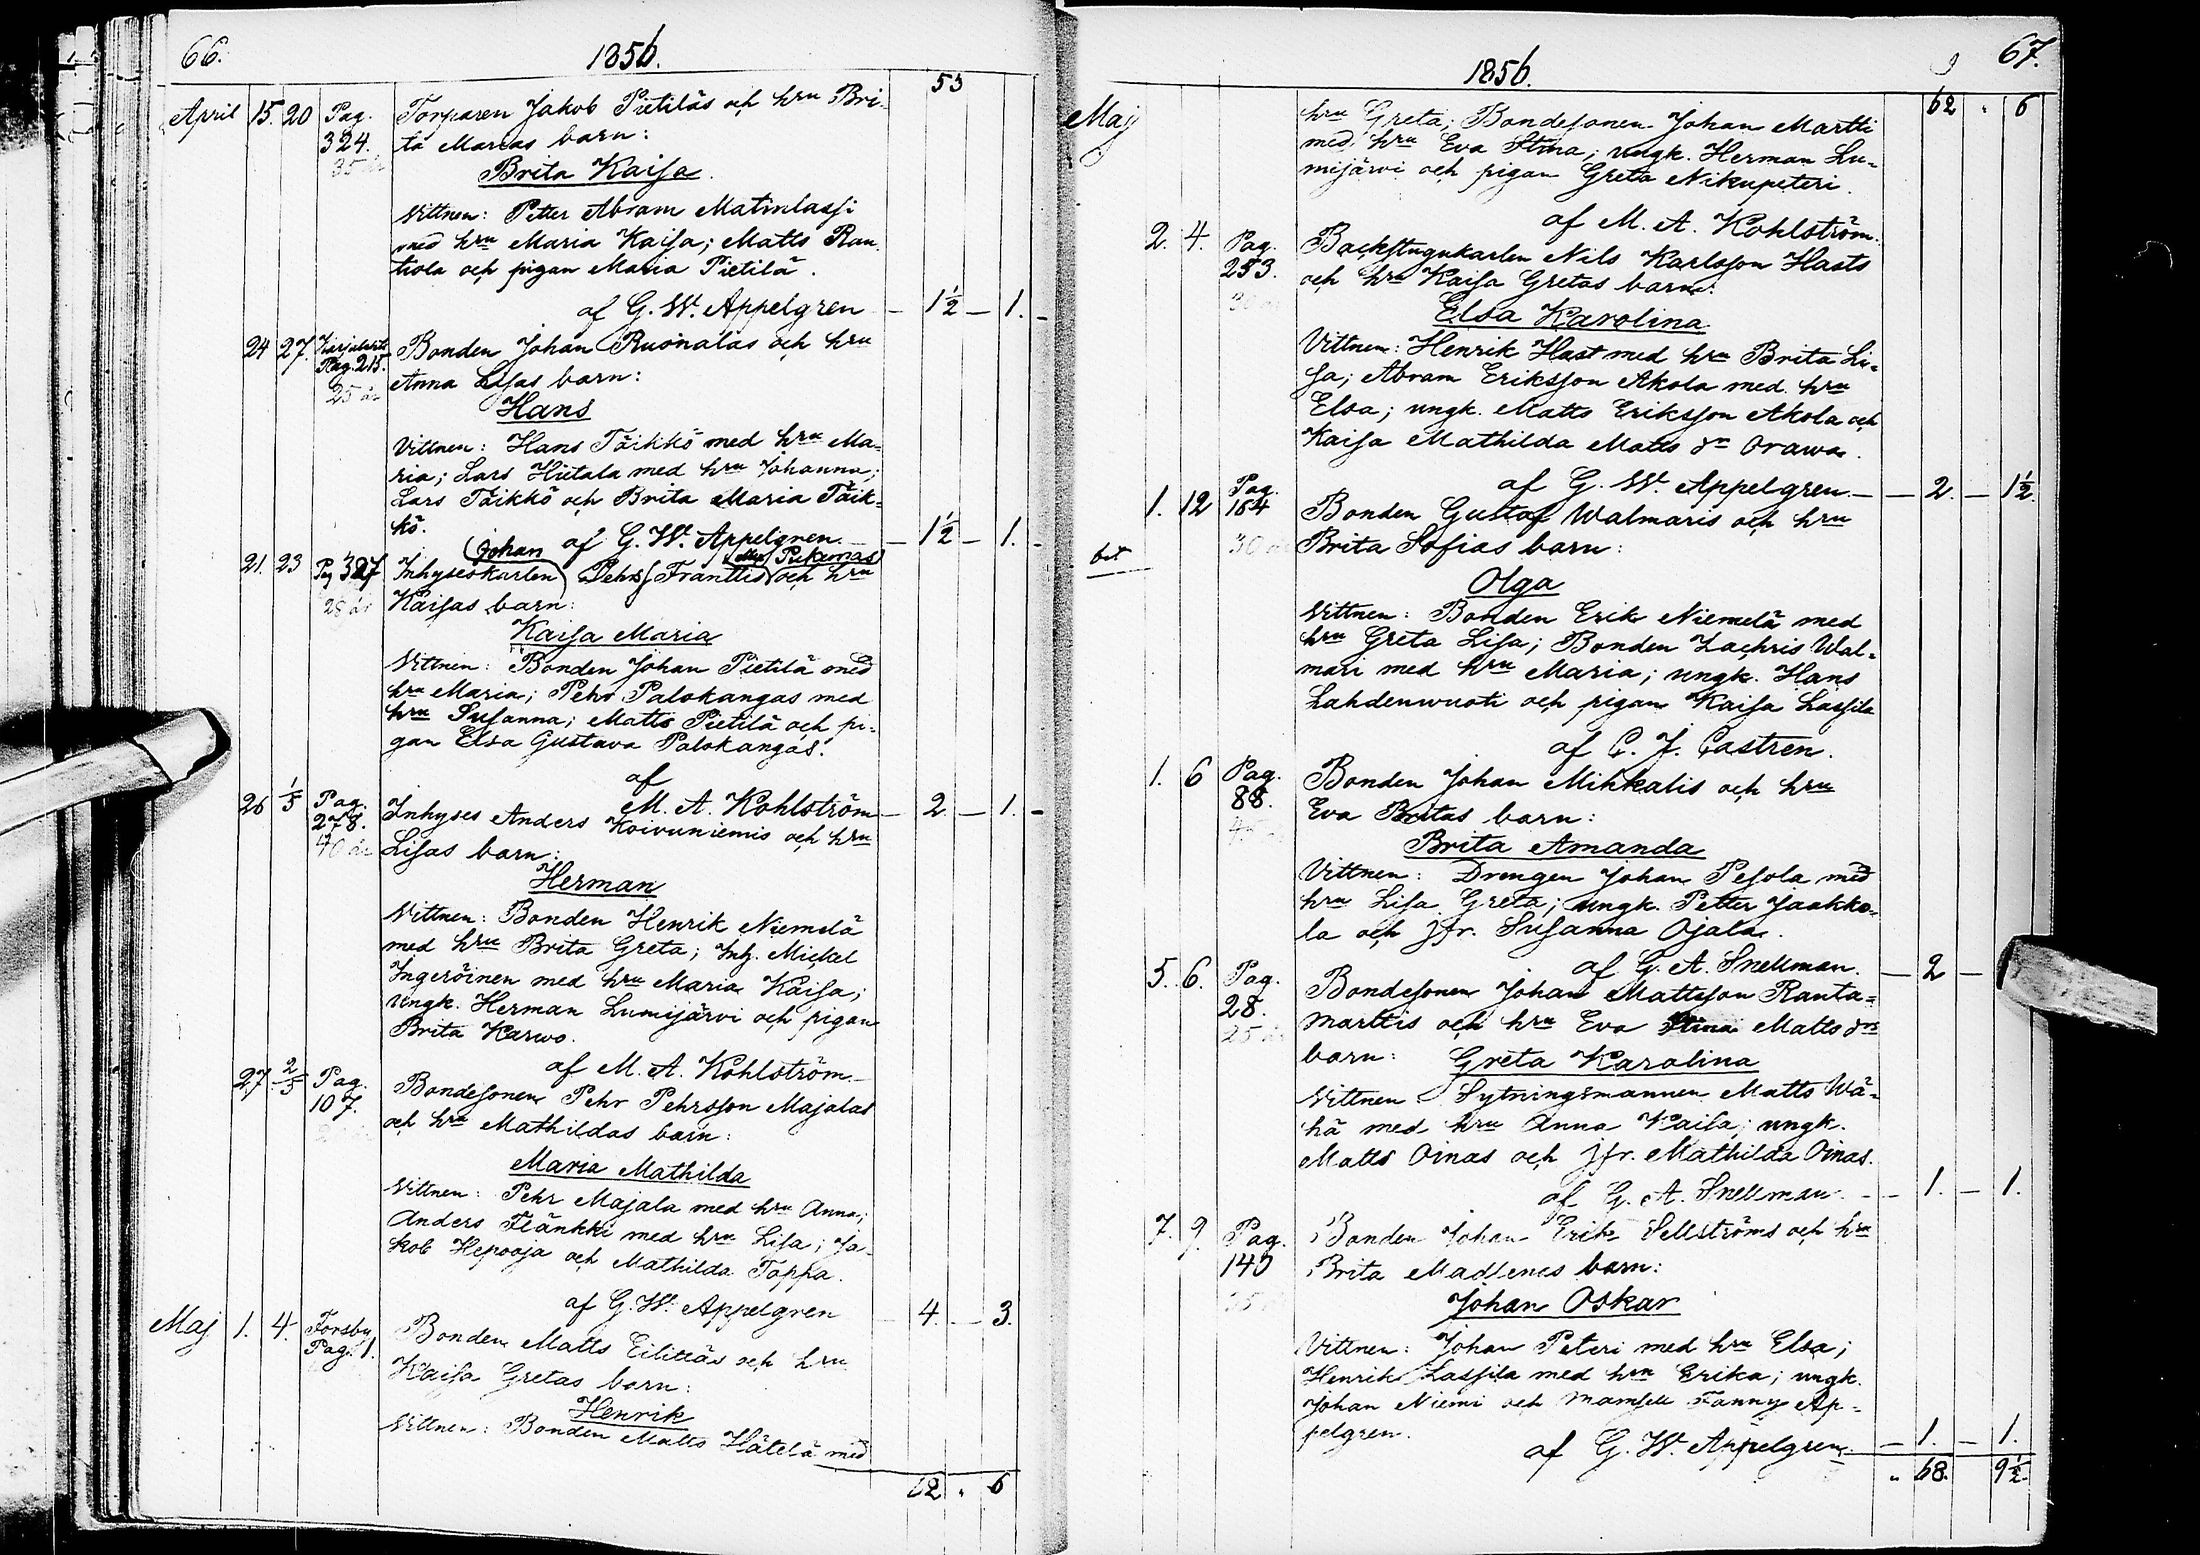 66.
1856.
53
April 15. 20 Pag. Torparen Jakob Pietiläs och hru Bri-
324. ta Marias barn:
35 år Brita Kaisa.
Vittnen: Petter Abram Matinlassi
med hru Maria Kaisa; Matts Ran
tiola och pigan Maria Pietilä.
af G. W. Appelgren — 1½ — 1. -
24 27. Karjalank. Bonden Johan Ruonalas och hru
Pag. 215. Anna Lisas barn:
25 år Hans
Vittnen: Hans Täikkö med hru Ma-
ria; Lars Hietala med hru Johanna;
Lars Täikkö och Brita Maria Täik-
kö.
af G. W. Appelgren — 1½ — 1. -
(Johan Piekunas
21. 23 Pag 327 Inhyseskarlen) Pehr Franttis och hru
28 år Kaisas barn:
Kaisa Maria
Vittnen: Bonden Johan Pietilä med
hru Maria; Pehr Palokangas med
hru Susanna; Matts Pietilä och pi-
gan Elsa Gustava Palokangas.
af
M. A. Kohlström — 2 — 1. -
26 1/5 Pag. Inhyses Anders Koivuniemis och hru
278.
40 år Lisas barn:
Herman
Vittnen: Bonden Henrik Niemelä
med hru Brita Greta; Inh. Mickel
Ingeröinen med hru Maria Kaisa;
Ungk. Herman Lumijärvi och pigan
Brita Karwo.
af M. A. Kohlström
27. 2/5 Pag. Bondesonen Pehr Pehrsson Majalas
107. och hru Mathildas barn:
Maria Mathilda
Vittnen: Pehr Majala med hru Anna;
Anders Flänkki med hru Lisa; Ja-
kob Hepooja och Mathilda Toppa.
af G. W. Appelgren 4. — 3.
Maj 1. 4. Forsby Bonden Matts Eilittäs och hru
Pag. 1. Kaisa Gretas barn:
Henrik
Vittnen: Bonden Matts Hätälä med
62 . 6
67.
1856.
62 . 6
Maj hru Greta; Bondesonen Johan Martti
med hru Eva Stina; ungk. Herman Lu-
mijärvi och pigan Greta Nikupeteri.
af M. A. Kohlström.
2. 4. Pag. Backstugukarlen Nils Karlsson Hasts
253. och hru Kaisa Gretas barn:
30 år Elsa Karolina
Vittnen: Henrik Hast med hru Brita Li-
sa; Abram Eriksson Akola med hru
Elsa; ungk. Matts Eriksson Akola och
Kaisa Mathilda Matts dr Orawa.
af G. W. Appelgren — — 2. — 1½
1. 12 Pag. 164 Bonden Gustaf Walmaris och hru
bet 30 år Brita Sofias barn:
Olga
Vittnen: Bonden Erik Niemelä med
hru Greta Lisa; Bonden Zachris Wal-
mari med hru Maria; ungk. Hans
Lahdenwuoti och pigan Kaisa Lassila
af C. J. Castren.
1. 6 Pag. Bonden Johan Mihkalis och hru
88. Eva Britas barn:
Brita Amanda
Vittnen: Drengen Johan Pesola med
hru Lisa Greta; ungk. Petter Jaakko-
la och jfr. Susanna Ojala.
af G. A. Snellman. — 2 —
5. 6. Pag. Bondesonen Johan Mattsson Ranta-
28. marttis och hru Eva Stina Matts drs
25 år barn: Greta Karolina
Vittnen: Sytningsmannen Matts Wä-
hä med hru Anna Kaisa; ungk.
Matts Oinas och jfr. Mathilda Oinas.
af G. A. Snellman - — 1. — 1.
7. 9. Pag. Bonden Johan Erik Sellströms och hru
140 Brita Madlenas barn:
Johan Oskar
Vittnen: Johan Peteri med hru Elsa;
Henrik Lassila med hru Erika; ungk.
Johan Niemi och Mamsell Fanny Ap-
pelgren.
af G. W. Appelgren. — 1. — 1.
" 68. 9½.